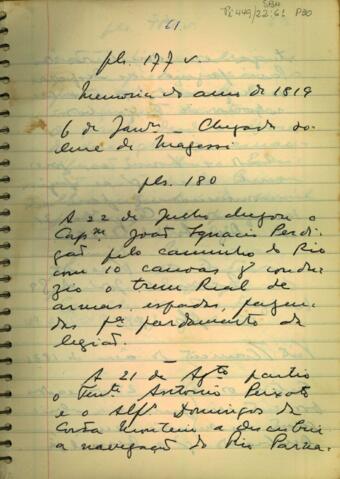 SBH
Pi 449/22:61 P30
61
pls. 177 v.
Memoria do anno de 1819
6 de Janr.º – Chegada so-
lene de Magessi
pls. 180
A 22 de Junho chegou o
Capᵐ João Ignacio Perdi-
gão pelo caminho do Rio
com 10 canoas q conda-
zio o trem Real de
armas, espadas, fazen-
das pª fardamento da
legião.
A 21 de Agto partio
o Tent. Antonio Peixoto
e o Alfs Domingos da
Costa Monteiro a descubrir
a navegação do Rio Parna-